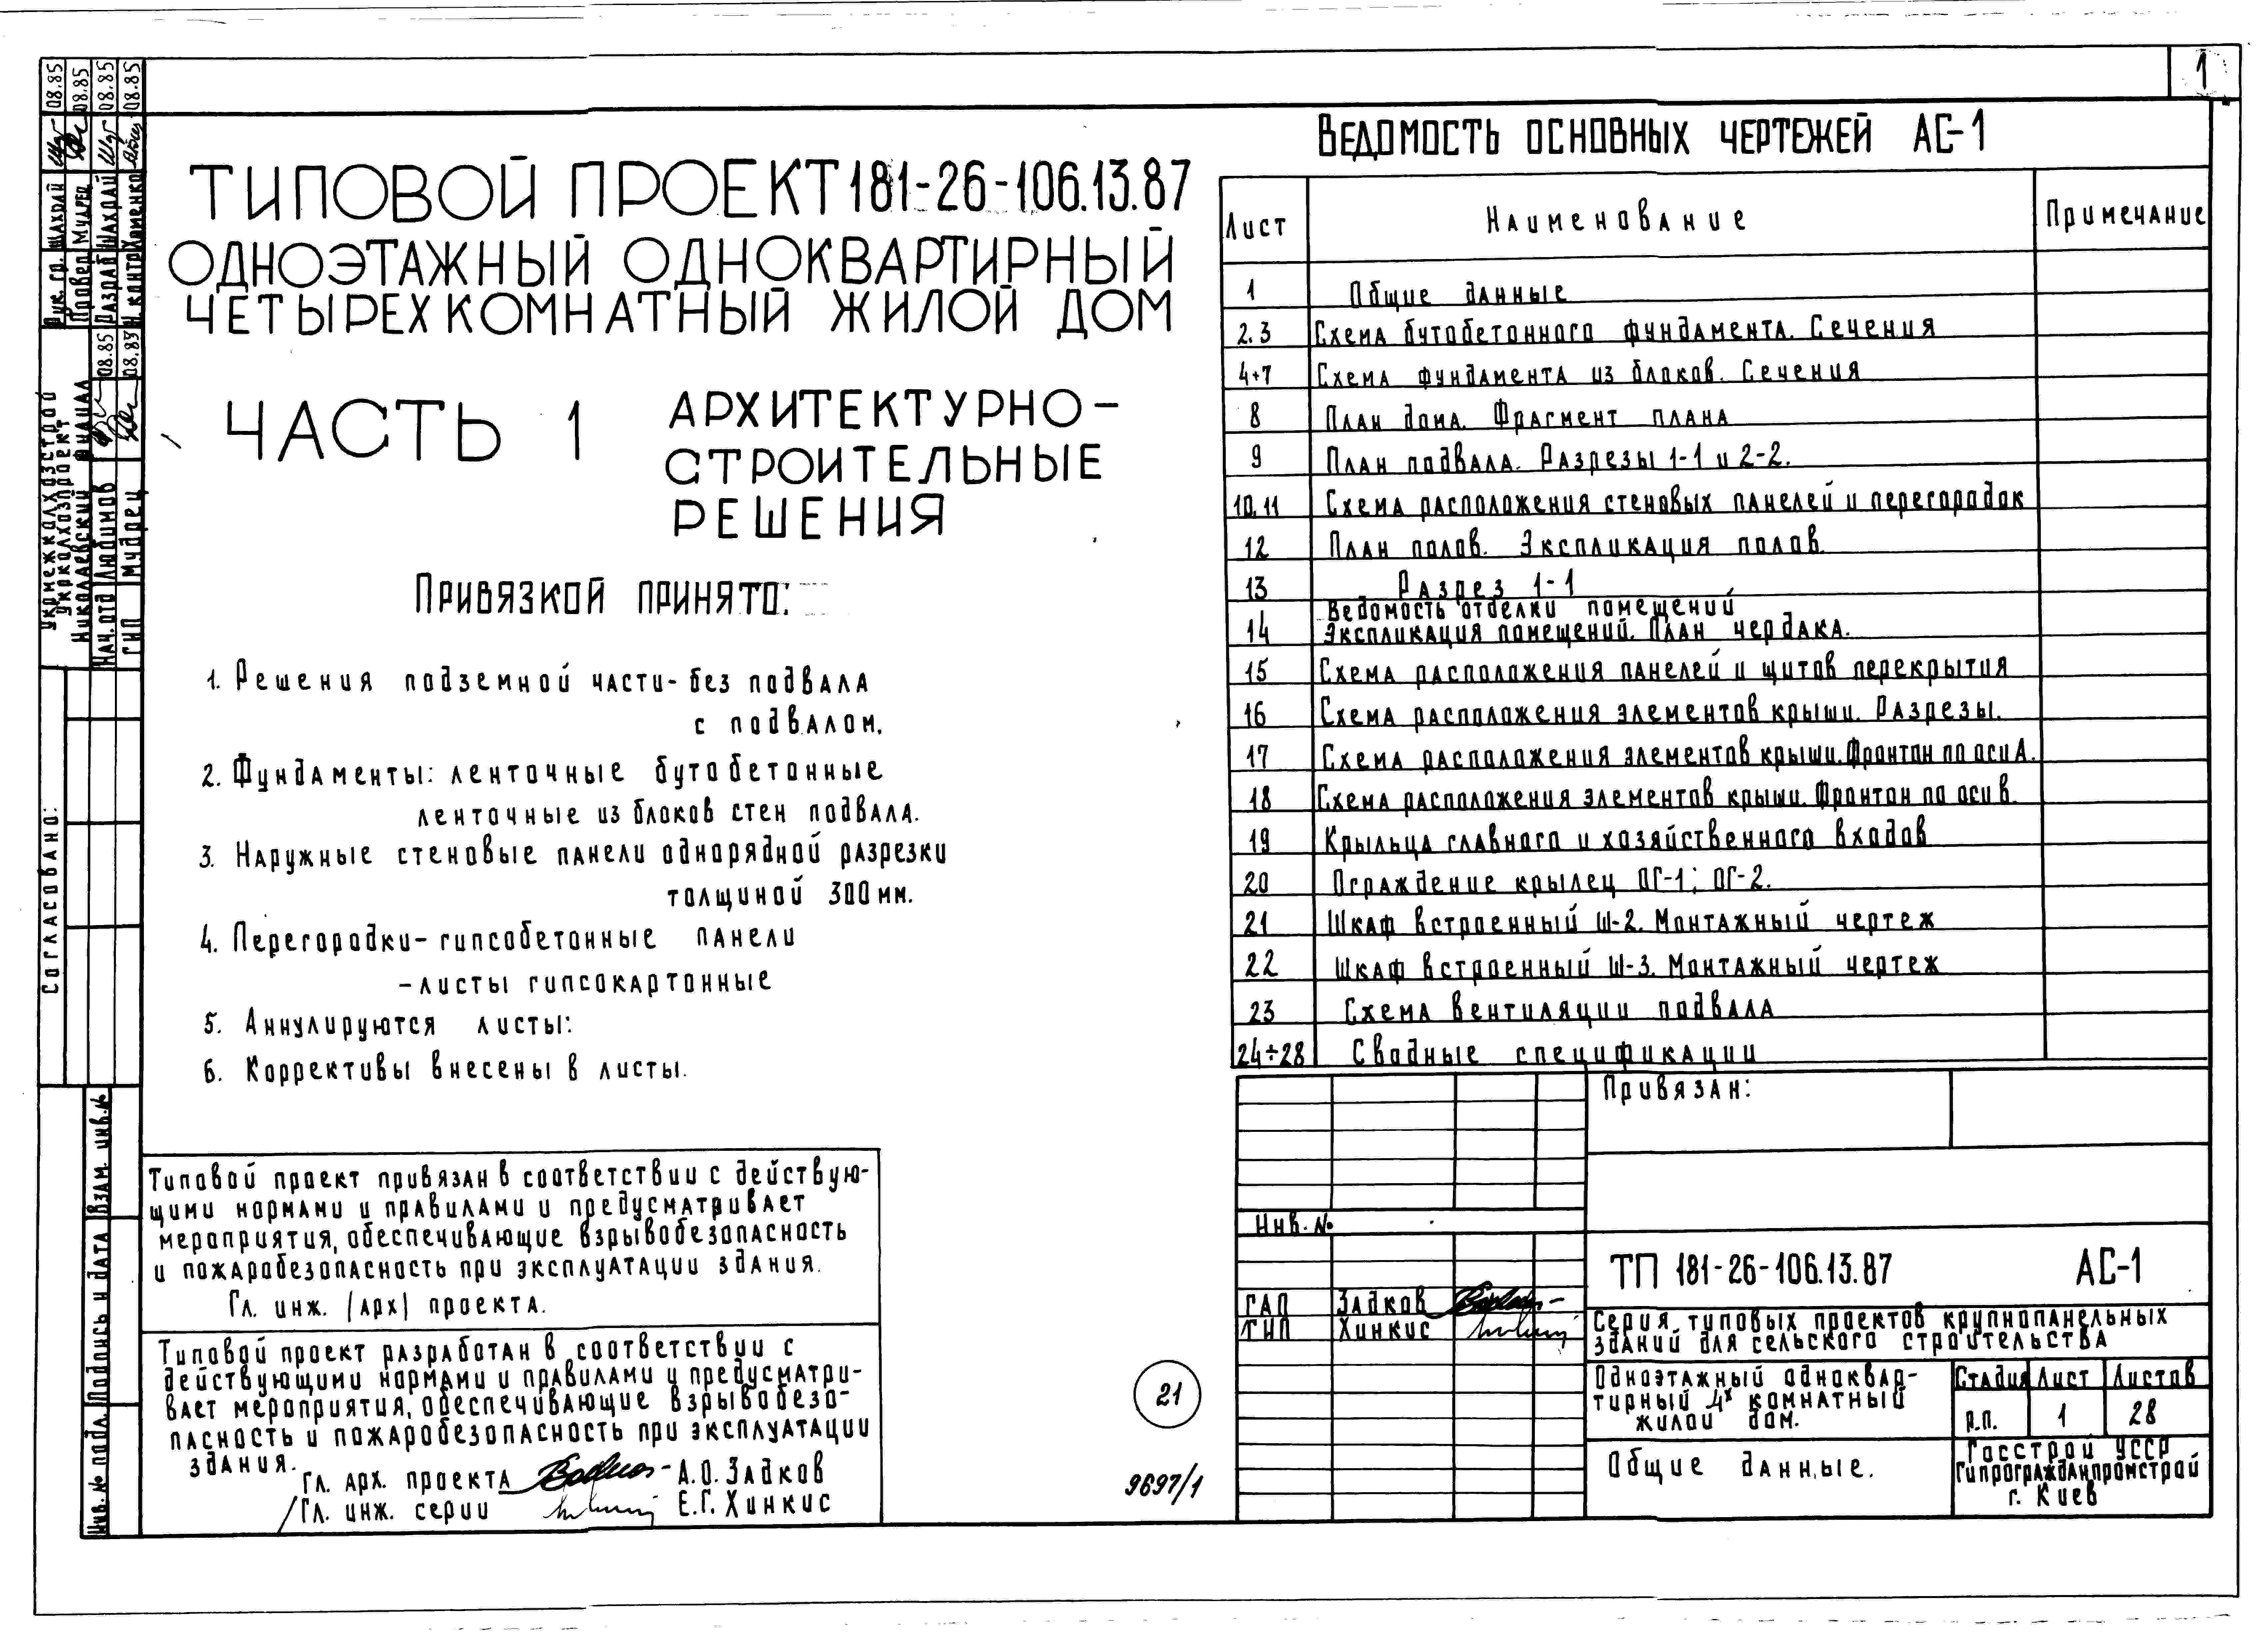 1
ТИПОВОЙ ПРОЕКТ 181-26-106.13.87
ОДНОЭТАЖНЫЙ ОДНОКВАРТИРНЫЙ
ЧЕТЫРЕХКОМНАТНЫЙ ЖИЛОЙ ДОМ
ЧАСТЬ 1 АРХИТЕКТУРНО-
СТРОИТЕЛЬНЫЕ
РЕШЕНИЯ
ПРИВЯЗКОЙ ПРИНЯТО:
1. Решения подземной части - без подвала
с подвалом.
2. Фундаменты: ленточные бутобетонные
ленточные из блоков стен подвала.
3. Наружные стеновые панели однорядной разрезки
толщиной 300 мм.
4. Перегородки - гипсобетонные панели
- листы гипсокартонные
5. Аннулируются листы:
6. Коррективы внесены в листы.
Типовой проект привязан в соответствии с действую-
щими нормами и правилами и предусматривает
мероприятия, обеспечивающие взрывобезопасность
и пожаробезопасность при эксплуатации здания.
Гл. инж. (арх) проекта.
Типовой проект разработан в соответствии с
действующими нормами и правилами и предусматри-
вает мероприятия, обеспечивающие взрывобезо-
пасность и пожаробезопасность при эксплуатации
здания.
Гл. арх. проекта А.О. Задков
Гл. инж. серии Е.Г. Хинкис
21
9697/1
ВЕДОМОСТЬ ОСНОВНЫХ ЧЕРТЕЖЕЙ АС-1
Лист Наименование Примечание
1 Общие данные
2.3 Схема бутобетонного фундамента. Сечения
4÷7 Схема фундамента из блоков. Сечения
8 План дома. Фрагмент плана
9 План подвала. Разрезы 1-1 и 2-2.
10.11 Схема расположения стеновых панелей и перегородок
12 План полов. Экспликация полов
13 Разрез 1-1
Ведомость отделки помещений
14 Экспликация помещений. План чердака.
15 Схема расположения панелей и щитов перекрытия
16 Схема расположения элементов крыши. Разрезы.
17 Схема расположения элементов крыши. Фронтон по оси А.
18 Схема расположения элементов крыши. Фронтон по оси В.
19 Крыльца главного и хозяйственного входов
20 Ограждение крылец ОГ-1; ОГ-2.
21 Шкаф встроенный Ш-2. Монтажный чертеж
22 Шкаф встроенный Ш-3. Монтажный чертеж
23 Схема вентиляции подвала
24÷28 Сводные спецификации
Привязан:
Инв. №
ТП 181-26-106.13.87 АС-1
ГАП Задков
ГИП Хинкис
Серия типовых проектов крупнопанельных
зданий для сельского строительства
Одноэтажный одноквар-
тирный 4х комнатный
жилой дом.
Стадия Лист Листов
р.п. 1 28
Общие данные.
Госстрой УССР
Гипрогражданпромстрой
г. Киев
Рук. гр. Шахрай 08.85
Провер. Мударец 08.85
Разраб. Шахрай 08.85
Н. контр. Хоменко 08.85
Укрмежколхозстрой
Укрколхозпроект
Николаевский филиал
Нач. отд Любимов 08.85
ГИП Мударец 08.85
Согласовано:
Взам. инв. №
Подпись и дата
Инв. № подл.